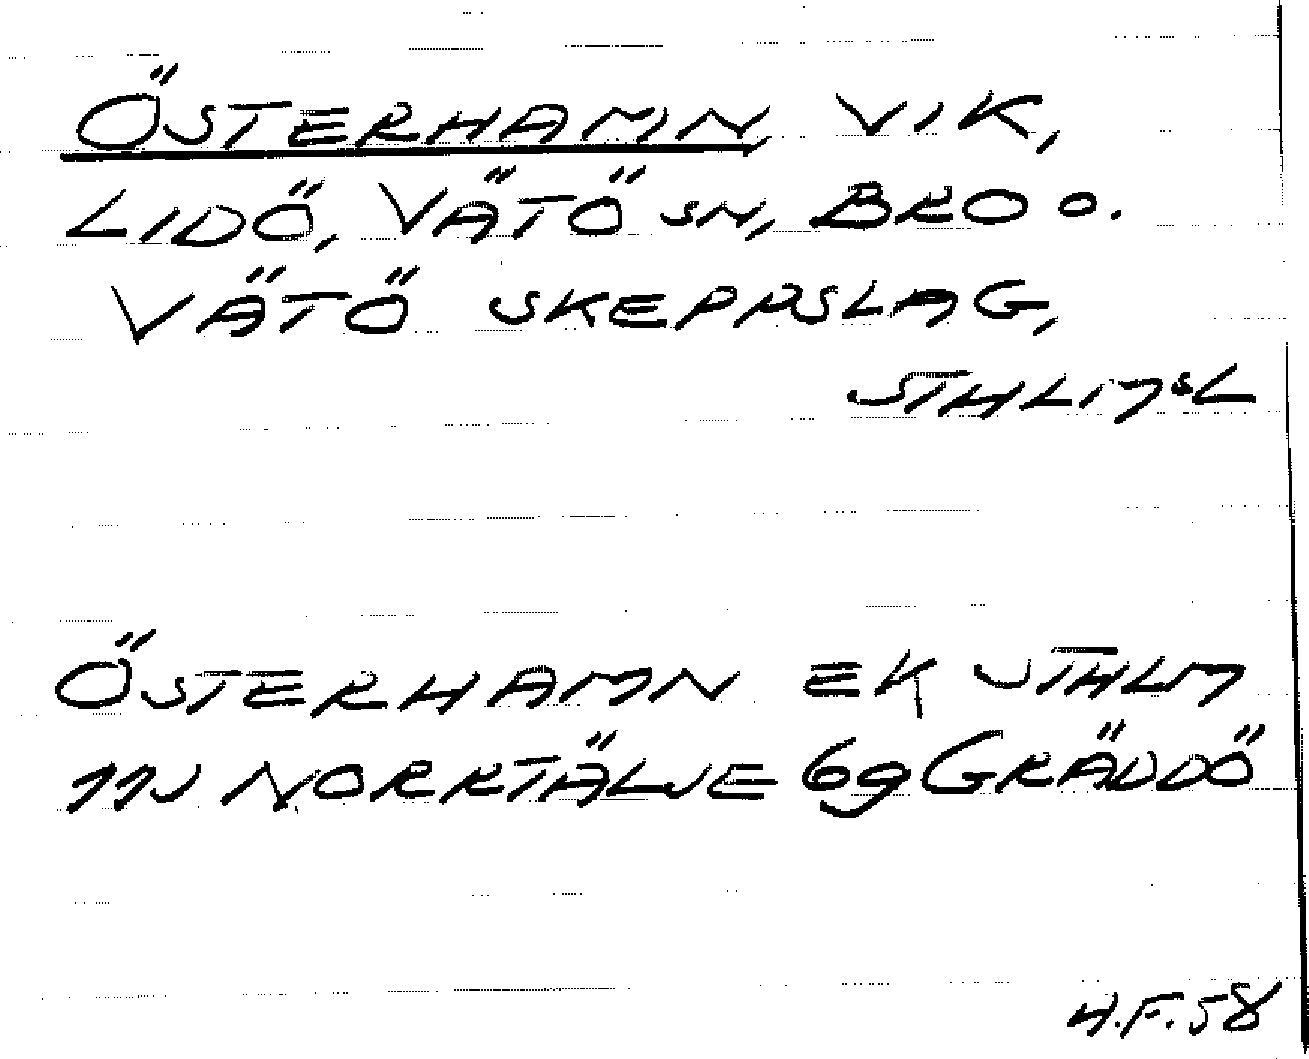 ÖSTERHAMN, VIK,
LIDÖ, VÄTÖ SN, BRO O.
VÄTÖ SKEPPSLAG,
STHLMSL
ÖSTERHAMN EK STHLM
11J NORRTÄLJE 6g GRÄDDÖ
H.F. 58